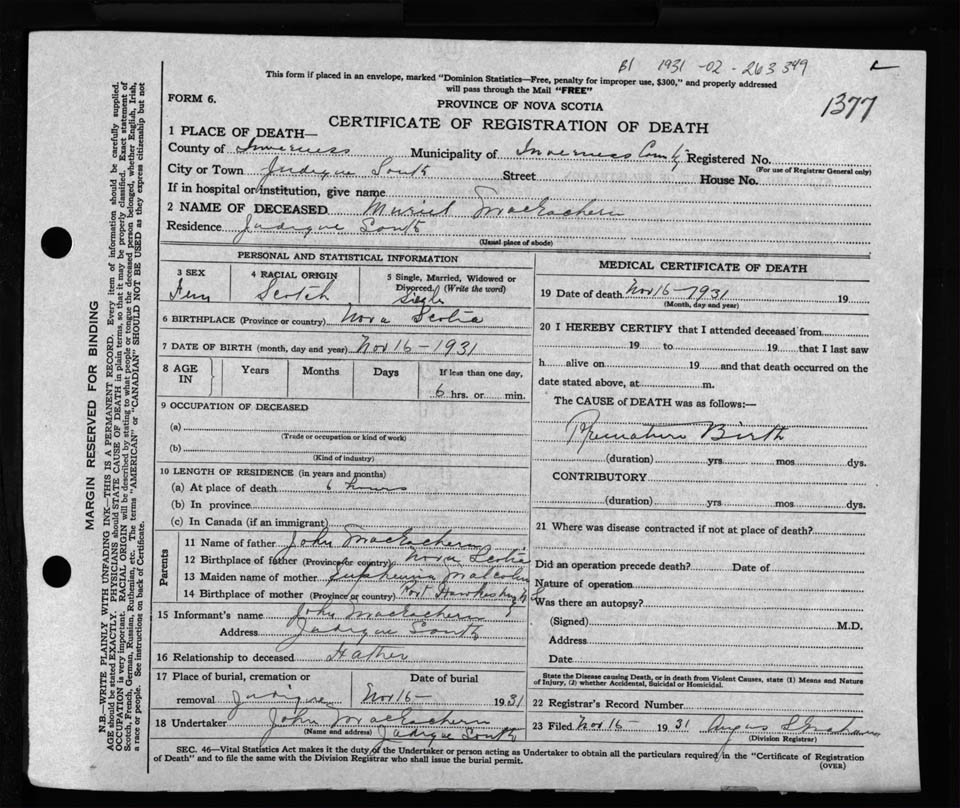 B1 1931 -02 - 263349
This form if placed in an envelope, marked "Dominion Statistics—Free, penalty for improper use, $300," and properly addressed
will pass through the Mail "FREE"
1377
FORM 6.
PROVINCE OF NOVA SCOTIA
CERTIFICATE OF REGISTRATION OF DEATH
1 PLACE OF DEATH—
County of Inverness Municipality of Inverness County Registered No.
(For use of Registrar General only)
City or Town Judique South Street House No.
If in hospital or institution, give name
2 NAME OF DECEASED Muriel MacEachern
Residence Judique South
(Usual place of abode)
PERSONAL AND STATISTICAL INFORMATION
3 SEX 4 RACIAL ORIGIN 5 Single, Married, Widowed or
Divorced. (Write the word)
Fem Scotch Single
6 BIRTHPLACE (Province or country) Nova Scotia
7 DATE OF BIRTH (month, day and year) Nov 16 - 1931
8 AGE IN Years Months Days If less than one day,
6 hrs. or min.
9 OCCUPATION OF DECEASED
(a)
(Trade or occupation or kind of work)
(b)
(Kind of industry)
10 LENGTH OF RESIDENCE (in years and months)
(a) At place of death 6 hours
(b) In province
(c) In Canada (if an immigrant)
Parents
11 Name of father John MacEachern
12 Birthplace of father (Province or country) Nova Scotia
13 Maiden name of mother Euphemia Malcolm
14 Birthplace of mother (Province or country) Port Hawkesbury N S
15 Informant's name John MacEachern
Address Judique South
16 Relationship to deceased Father
17 Place of burial, cremation or Date of burial
removal Judique Nov 16 - 1931
18 Undertaker John MacEachern
(Name and address) Judique South
MEDICAL CERTIFICATE OF DEATH
19 Date of death Nov 16 - 1931 19
(Month, day and year)
20 I HEREBY CERTIFY that I attended deceased from
19 to 19 that I last saw
h alive on 19 and that death occurred on the
date stated above, at m.
The CAUSE of DEATH was as follows:—
Premature Birth
(duration) yrs mos dys.
CONTRIBUTORY
(duration) yrs mos dys.
21 Where was disease contracted if not at place of death?
Did an operation precede death? Date of
Nature of operation
Was there an autopsy?
(Signed) M.D.
Address
Date
State the Disease causing Death, or in death from Violent Causes, state (1) Means and Nature
of Injury, (2) whether Accidental, Suicidal or Homicidal.
22 Registrar's Record Number
23 Filed Nov 16 - 1931 Angus
(Division Registrar)
SEC. 46—Vital Statistics Act makes it the duty of the Undertaker or person acting as Undertaker to obtain all the particulars required in the "Certificate of Registration
of Death" and to file the same with the Division Registrar who shall issue the burial permit.
(OVER)
MARGIN RESERVED FOR BINDING
N.B.—WRITE PLAINLY WITH UNFADING INK—THIS IS A PERMANENT RECORD. Every item of information should be carefully supplied.
AGE should be stated EXACTLY. PHYSICIANS should STATE CAUSE OF DEATH in plain terms, so that it may be properly classified. Exact statement of
OCCUPATION is very important. RACIAL ORIGIN will be described by stating to what people or tongue the deceased person belonged, whether English, Irish,
Scotch, French, German, Russian, Ruthenian, etc. The terms "AMERICAN" or "CANADIAN" SHOULD NOT BE USED as they express citizenship but not
a race or people. See instructions on back of Certificate.